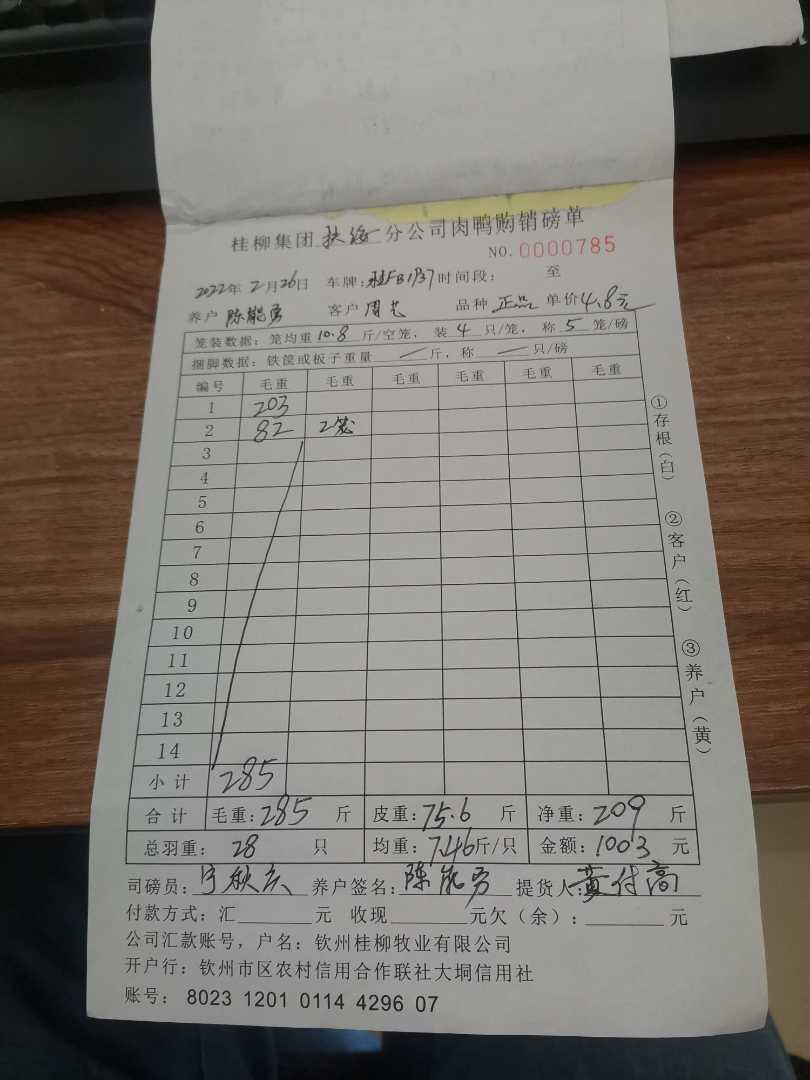 桂柳集团 扶绥 分公司肉鸭购销磅单
NO. 0000785
2022年2月26日 车牌: 时间段: 至
养户 陈能勇 客户 周 品种 正品 单价4.8元
笼装数据: 笼均重 10.8 斤/空笼, 装 4 只/笼, 称 5 笼/磅
捆脚数据: 铁筐或板子重量 — 斤, 称 — 只/磅
编号 毛重 毛重 毛重 毛重 毛重 毛重
1 203
2 82 2笼
3
4
5
6
7
8
9
10
11
12
13
14
小计 285
合计 毛重: 285 斤 皮重: 75.6 斤 净重: 209 斤
总羽重: 28 只 均重: 7.46斤/只 金额: 1003 元
司磅员: 养户签名: 陈能勇 提货人: 黄付高
付款方式: 汇 元 收现 元欠(余): 元
公司汇款账号, 户名: 钦州桂柳牧业有限公司
开户行: 钦州市区农村信用合作联社大垌信用社
账号: 8023 1201 0114 4296 07
①存根(白)
②客户(红)
③养户(黄)